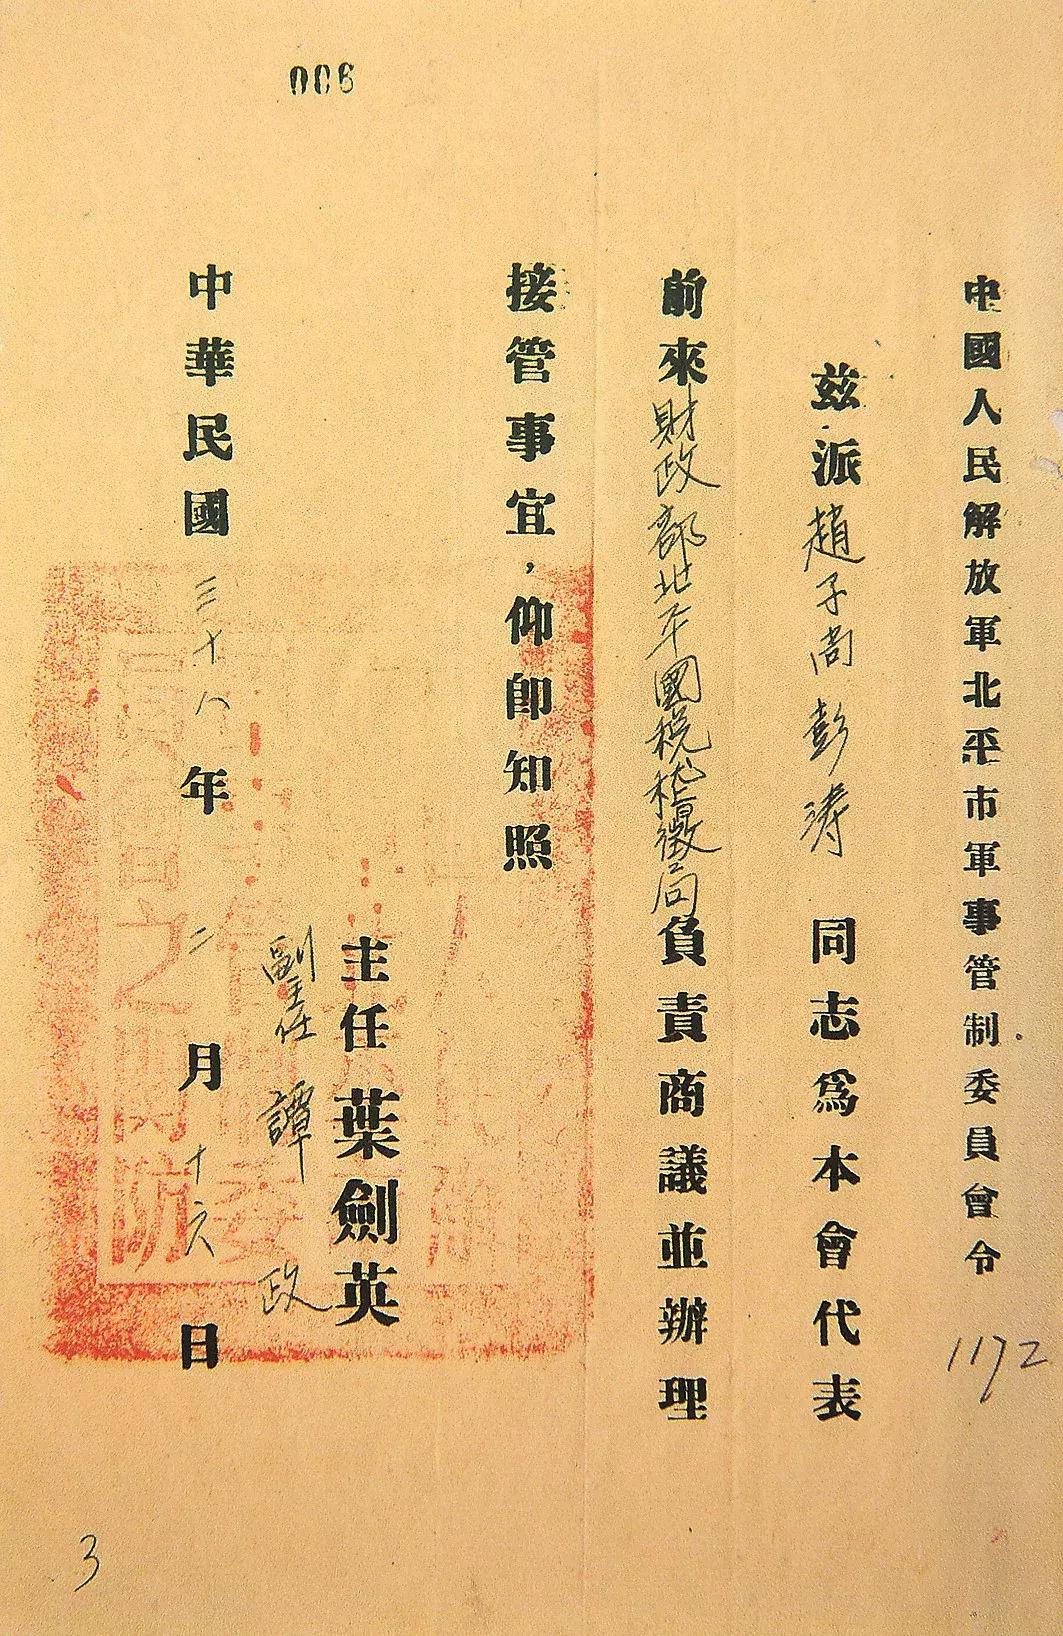 006
中國人民解放軍北平市軍事管制委員會令
1172
茲派趙子尚彭濤同志爲本會代表
前來財政部北平國稅稽徵局負責商議並辦理
接管事宜，仰卽知照
主任葉劍英
副主任譚政
中華民國三十八年二月十六日
3